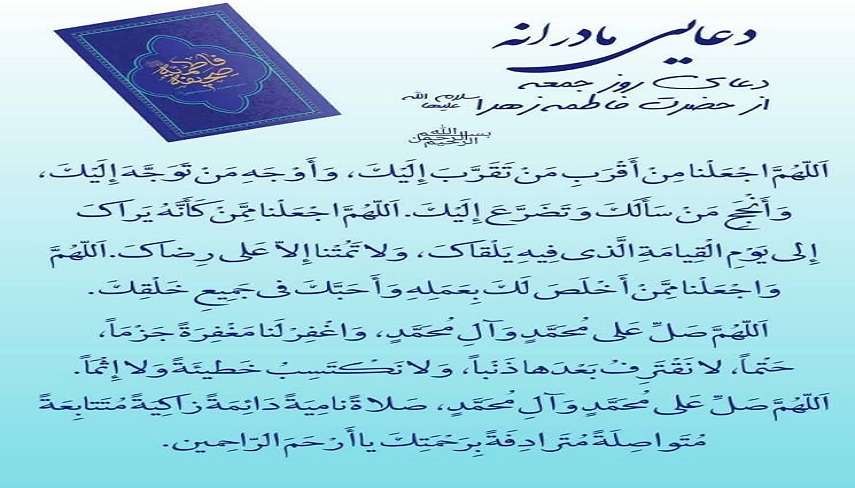 دعایی مادرانه
دعای روز جمعه
از حضرت فاطمه زهرا سلام الله علیها
صحیفه فاطمیه
بسم الله الرحمن الرحیم
اَللّهُمَّ اجْعَلْنا مِنْ أَقْرَبِ مَنْ تَقَرَّبَ إِلَیْكَ، وَ أَوْجَهِ مَنْ تَوَجَّهَ إِلَیْكَ،
وَ أَنْجَحِ مَنْ سَأَلَكَ وَ تَضَرَّعَ إِلَیْكَ. اَللّهُمَّ اجْعَلْنا مِمَّنْ كَأَنَّهُ یَراكَ
إِلی یَوْمِ الْقِیامَةِ الَّذی فیهِ یَلْقاكَ، وَ لا تُمِتْنا إِلاّ عَلی رِضاكَ. اَللّهُمَّ
وَ اجْعَلْنا مِمَّنْ أَخْلَصَ لَكَ بِعَمَلِهِ وَ أَحَبَّكَ فی جَمیعِ خَلْقِكَ.
اَللّهُمَّ صَلِّ عَلی مُحَمَّدٍ وَ آلِ مُحَمَّدٍ، وَ اغْفِرْ لَنا مَغْفِرَةً جَزْماً،
حَتْماً، لا نَقْتَرِفُ بَعْدَها ذَنْباً، وَ لا نَكْتَسِبُ خَطیئَةً وَ لا إِثْماً.
اَللّهُمَّ صَلِّ عَلی مُحَمَّدٍ وَ آلِ مُحَمَّدٍ، صَلاةً نامِیَةً دائِمَةً زاكِیَةً مُتَتابِعَةً
مُتَواصِلَةً مُتَرادِفَةً بِرَحْمَتِكَ یا أَرْحَمَ الرّاحِمین.